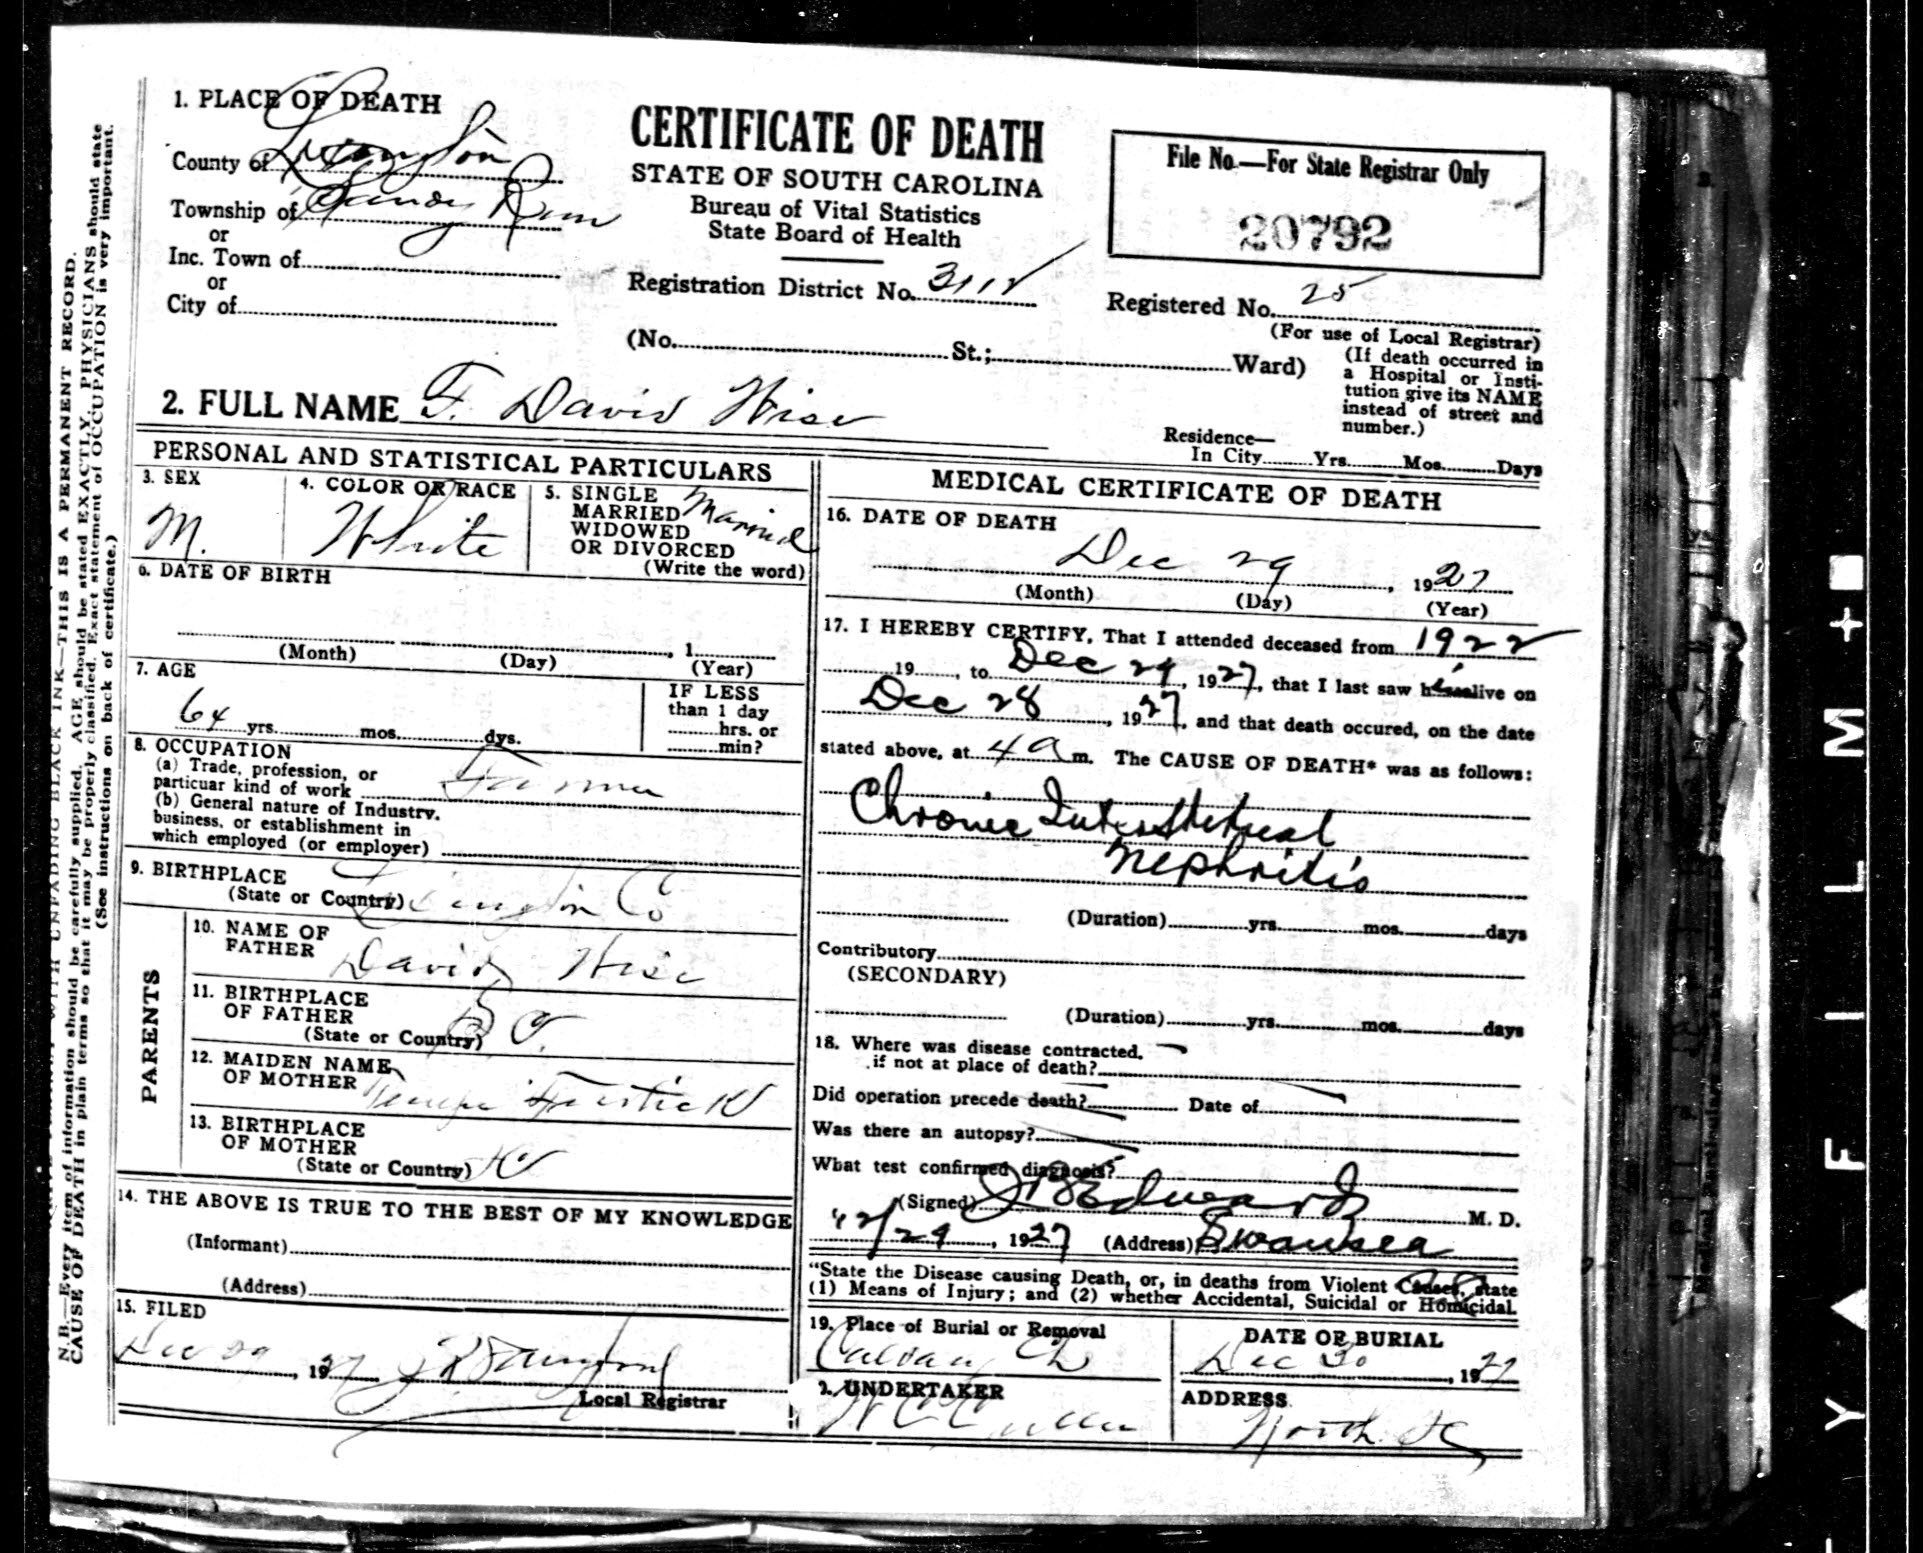 1. PLACE OF DEATH
County of Lexington
Township of Sandy Run
or
Inc. Town of
or
City of
CERTIFICATE OF DEATH
STATE OF SOUTH CAROLINA
Bureau of Vital Statistics
State Board of Health
Registration District No.
File No.—For State Registrar Only
20792
Registered No. 25
(For use of Local Registrar)
(No. St.; Ward)
(If death occurred in
a Hospital or Insti-
tution give its NAME
instead of street and
number.)
2. FULL NAME F. David Wise
Residence—
In City Yrs. Mos. Days
PERSONAL AND STATISTICAL PARTICULARS
3. SEX
M.
4. COLOR OR RACE
White
5. SINGLE
MARRIED
WIDOWED
OR DIVORCED
(Write the word)
Married
6. DATE OF BIRTH
, 1
(Month) (Day) (Year)
7. AGE
64 yrs. mos. dys.
IF LESS
than 1 day
hrs. or
min?
8. OCCUPATION
(a) Trade, profession, or
particuar kind of work Farmer
(b) General nature of Industry.
business, or establishment in
which employed (or employer)
9. BIRTHPLACE
(State or Country) Lexington Co
PARENTS
10. NAME OF
FATHER David Wise
11. BIRTHPLACE
OF FATHER
(State or Country) S C.
12. MAIDEN NAME
OF MOTHER
13. BIRTHPLACE
OF MOTHER
(State or Country)
14. THE ABOVE IS TRUE TO THE BEST OF MY KNOWLEDGE
(Informant)
(Address)
15. FILED
Dec 29, 1927
Local Registrar
MEDICAL CERTIFICATE OF DEATH
16. DATE OF DEATH
Dec 29, 1927
(Month) (Day) (Year)
17. I HEREBY CERTIFY, That I attended deceased from 1922
19 , to Dec 29, 1927, that I last saw him alive on
Dec 28, 1927, and that death occured, on the date
stated above, at 4 a m. The CAUSE OF DEATH* was as follows:
Chronic Interstitial
Nephritis
(Duration) yrs. mos. days
Contributory
(SECONDARY)
(Duration) yrs. mos. days
18. Where was disease contracted.
if not at place of death?
Did operation precede death? Date of
Was there an autopsy?
What test confirmed diagnosis?
(Signed) Edwards M. D.
12/29, 1927 (Address) Swansea
"State the Disease causing Death, or, in deaths from Violent Causes, state
(1) Means of Injury; and (2) whether Accidental, Suicidal or Homicidal.
19. Place of Burial or Removal
Calvary Ch
DATE OF BURIAL
Dec 30, 1927
UNDERTAKER
ADDRESS
North SC
N.B.—Every item of information should be carefully supplied. AGE should be stated EXACTLY. PHYSICIANS should state
CAUSE OF DEATH in plain terms so that it may be properly classified. Exact statement of OCCUPATION is very important.
(See instructions on back of certificate.)
WITH UNFADING BLACK INK—THIS IS A PERMANENT RECORD.
FILM